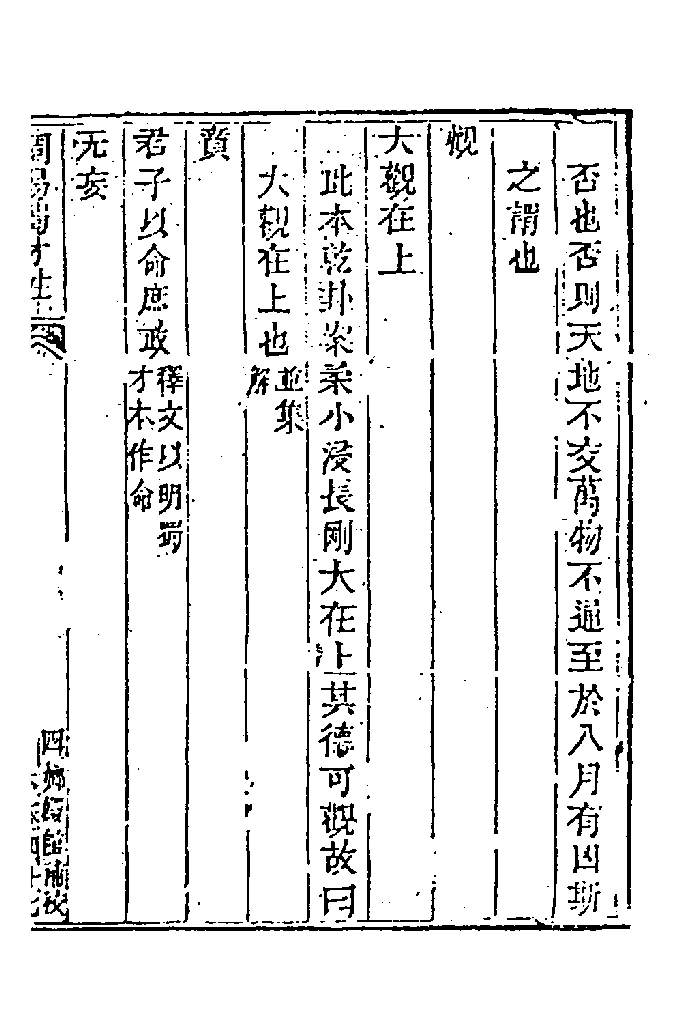 否也否則天地不交萬物不通至於八月有凶斯
之謂也
觀
大觀在上
此本乾卦案柔小浸長剛大在上其德可觀故曰
大觀在上也並集解
賁
君子以命庶政釋文以明蜀才本作命
无妄
周易蜀才注
四 嫏嬛館補校